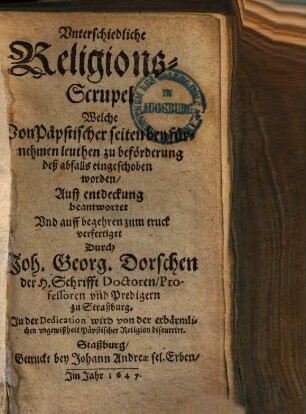 Vnterschiedliche
Religions-
Scrupel
Welche
Von Päpstischer seiten bey für-
nehmen leuthen zu beförderung
deß abfalls eingeschoben
worden/
Auff entdeckung
beantwortet
Vnd auff begehren zum truck
verfertiget
Durch
Joh. Georg. Dorschen
der H. Schrifft Doctoren/ Pro-
fessoren vnd Predigern
zu Straßburg.
In der Dedication wird von der erbärmli-
chen vngewißheit Päpstischer Religion discurrirt.
Staßburg/
Getruckt bey Johann Andreæ sel. Erben/
Im Jahr 1647.
IN
AUGSBURG